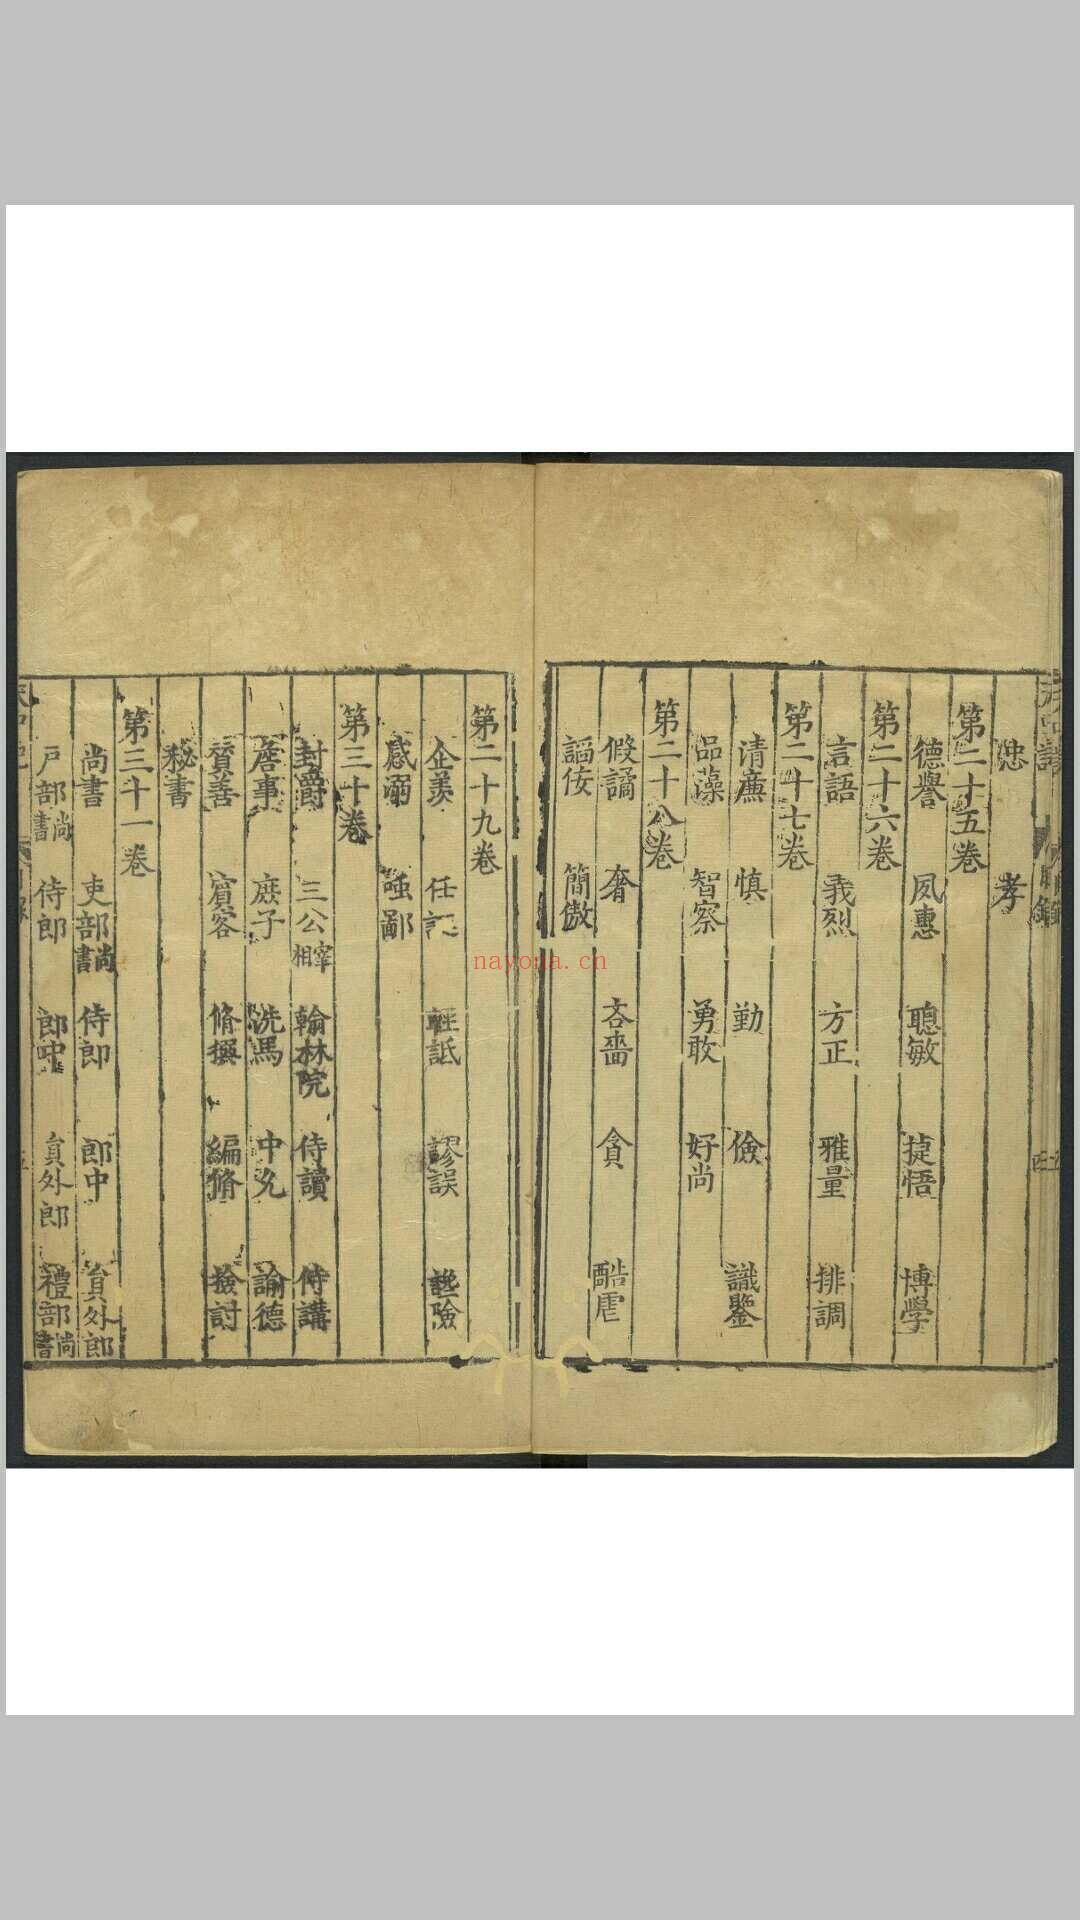 忠 孝
第二十五卷
德譽 夙惠 聰敏 捷悟 博學
第二十六卷
言語 義烈 方正 雅量 排調
第二十七卷
清廉 慎 勤 儉 識鑒
品藻 智察 勇敢 好尚
第二十八卷
假譎 奢 吝嗇 貪 酷虐
諂佞 簡傲
第二十九卷
企羡 任 輕詆 謬誤 讒險
惑溺 嗤鄙
第三十卷
封爵 三公宰相 翰林院 侍讀 侍講
詹事 庶子 洗馬 中允 諭德
贊善 賓客 脩撰 編脩 檢討
秘書
第三十一卷
尚書 吏部尚書 侍郎 郎中 員外郎
戶部尚書 侍郎 郎中 員外郎 禮部尚書
nayona.cn